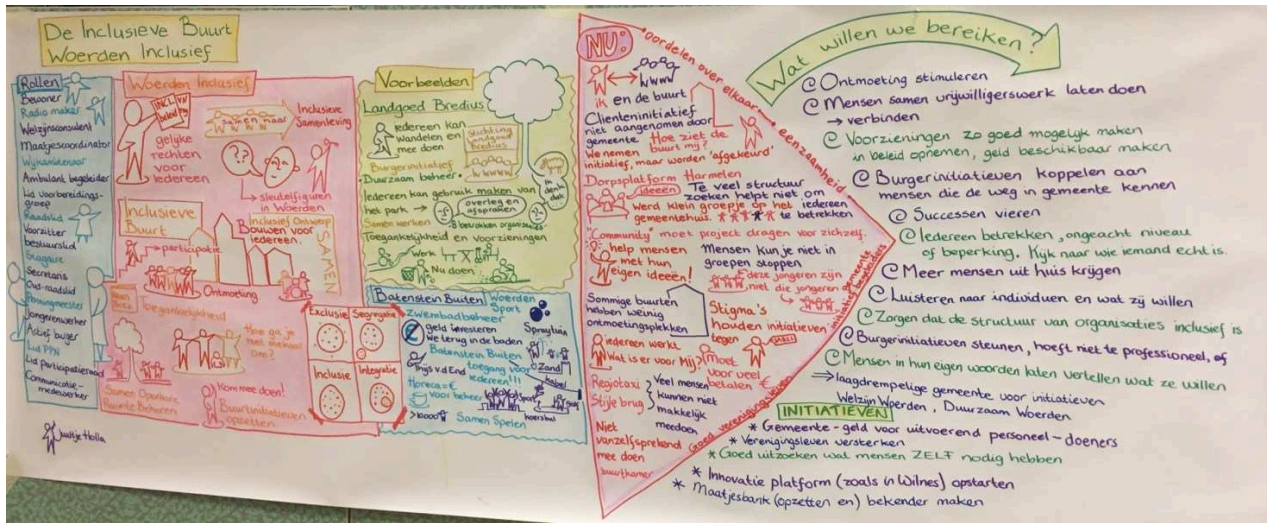 De Inclusieve Buurt
Woerden Inclusief
Rollen
Bewoner
Radio maker
Welzijnsconsulent
Maatjescoordinator
Wijkambtenaar
Ambulant begeleider
Lid voorbereidings-
groep
Raadslid
Voorzitter
bestuurslid
Stagiaire
Secretaris
Oud-raadslid
Penningmeester
Jongerenwerker
Actief burger
Lid PPN
Lid participatieraad
Communicatie-
medewerker
Woerden Inclusief
INCL.
beleid
VN
gelijke
rechten
voor
iedereen
samen naar
Inclusieve
Samenleving
sleutelfiguren
in Woerden
Inclusieve
Buurt
Inclusief Ontwerp
Bouwen voor
iedereen.
SAMEN
participatie
Ontmoeting
Toegankelijkheid
Hoe ga je
met elkaar
om?
Samen Openbare
Ruimte Beheren
Kom mee doen!
Buurtinitiatieven
opzetten
Exclusie
Segregatie
Inclusie
Integratie
Voorbeelden
Landgoed Bredius
iedereen kan
wandelen en
mee doen
Stichting
Landgoed
Bredius
Burgerinitiatief
Duurzaam beheer
Iedereen kan gebruik maken van
het park
overleg en
afspraken
ik
denk
dat
Samen werken
8 betrokken organisaties
Toegankelijkheid en voorzieningen
Werk
Nu doen
Batenstein Buiten
Woerden
Sport
Zwembadbeheer
geld investeren
we terug in de baden
Spraytuin
Batenstein Buiten
Thijs v.d End
toegang voor
iedereen!!!
Zand
Kabel
Horeca = €
Voor beheer
Sport
Samen Spelen
NU:
Oordelen over elkaar
eenzaamheid
ik en de buurt
Clienteninitiatief
niet aangenomen door
gemeente
Hoe ziet de
buurt mij?
We nemen
initiatief, maar worden 'afgekeurd'
Dorpsplatform Harmelen
ideeën
Te veel structuur
zoeken helpt niet om
werd klein groepje op het
gemeentehuis.
iedereen
te betrekken
"Community" moet project dragen voor zichzelf.
help mensen
met hun
eigen ideeën!
Mensen kun je niet in
groepen stoppen
deze jongeren zijn
niet die jongeren
Sommige buurten
hebben weinig
ontmoetingsplekken
Stigma's
houden initiatieven
tegen
iedereen werkt
Wat is er voor Mij?
moet
voor veel
betalen €
Regiotaxi
Steile brug
Veel mensen
kunnen niet
makkelijk
meedoen
Niet
vanzelfsprekend
mee doen
buurtkamer
Goed verenigingsleven
Wat willen we bereiken?
Ontmoeting stimuleren
Mensen samen vrijwilligerswerk laten doen
→ verbinden
Voorzieningen zo goed mogelijk maken
in beleid opnemen, geld beschikbaar maken
Burgerinitiatieven koppelen aan
mensen die de weg in gemeente kennen
Successen vieren
Iedereen betrekken, ongeacht niveau
of beperking. Kijk naar wie iemand echt is.
Meer mensen uit huis krijgen
Luisteren naar individuen en wat zij willen
Zorgen dat de structuur van organisaties inclusief is
Burgerinitiatieven steunen, hoeft niet te professioneel, of
Mensen in hun eigen woorden laten vertellen wat ze willen
⇒ laagdrempelige gemeente voor initiatieven
Welzijn Woerden, Duurzaam Woerden
INITIATIEVEN
* Gemeente - geld voor uitvoerend personeel - doeners
* Verenigingsleven versterken
* Goed uitzoeken wat mensen ZELF nodig hebben
* Innovatie platform (zoals in Wilnes) opstarten
* Maatjesbank (opzetten en) bekender maken